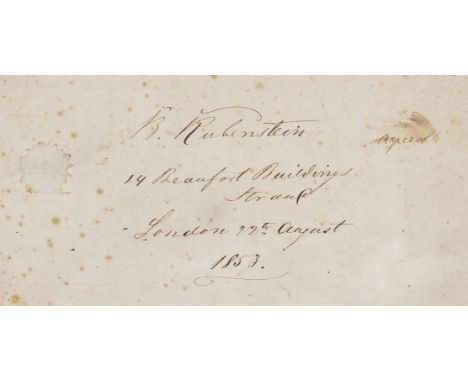 B. Rubenstein
14 Beaufort Buildings
Strand
London 22ᵈ August
1853.